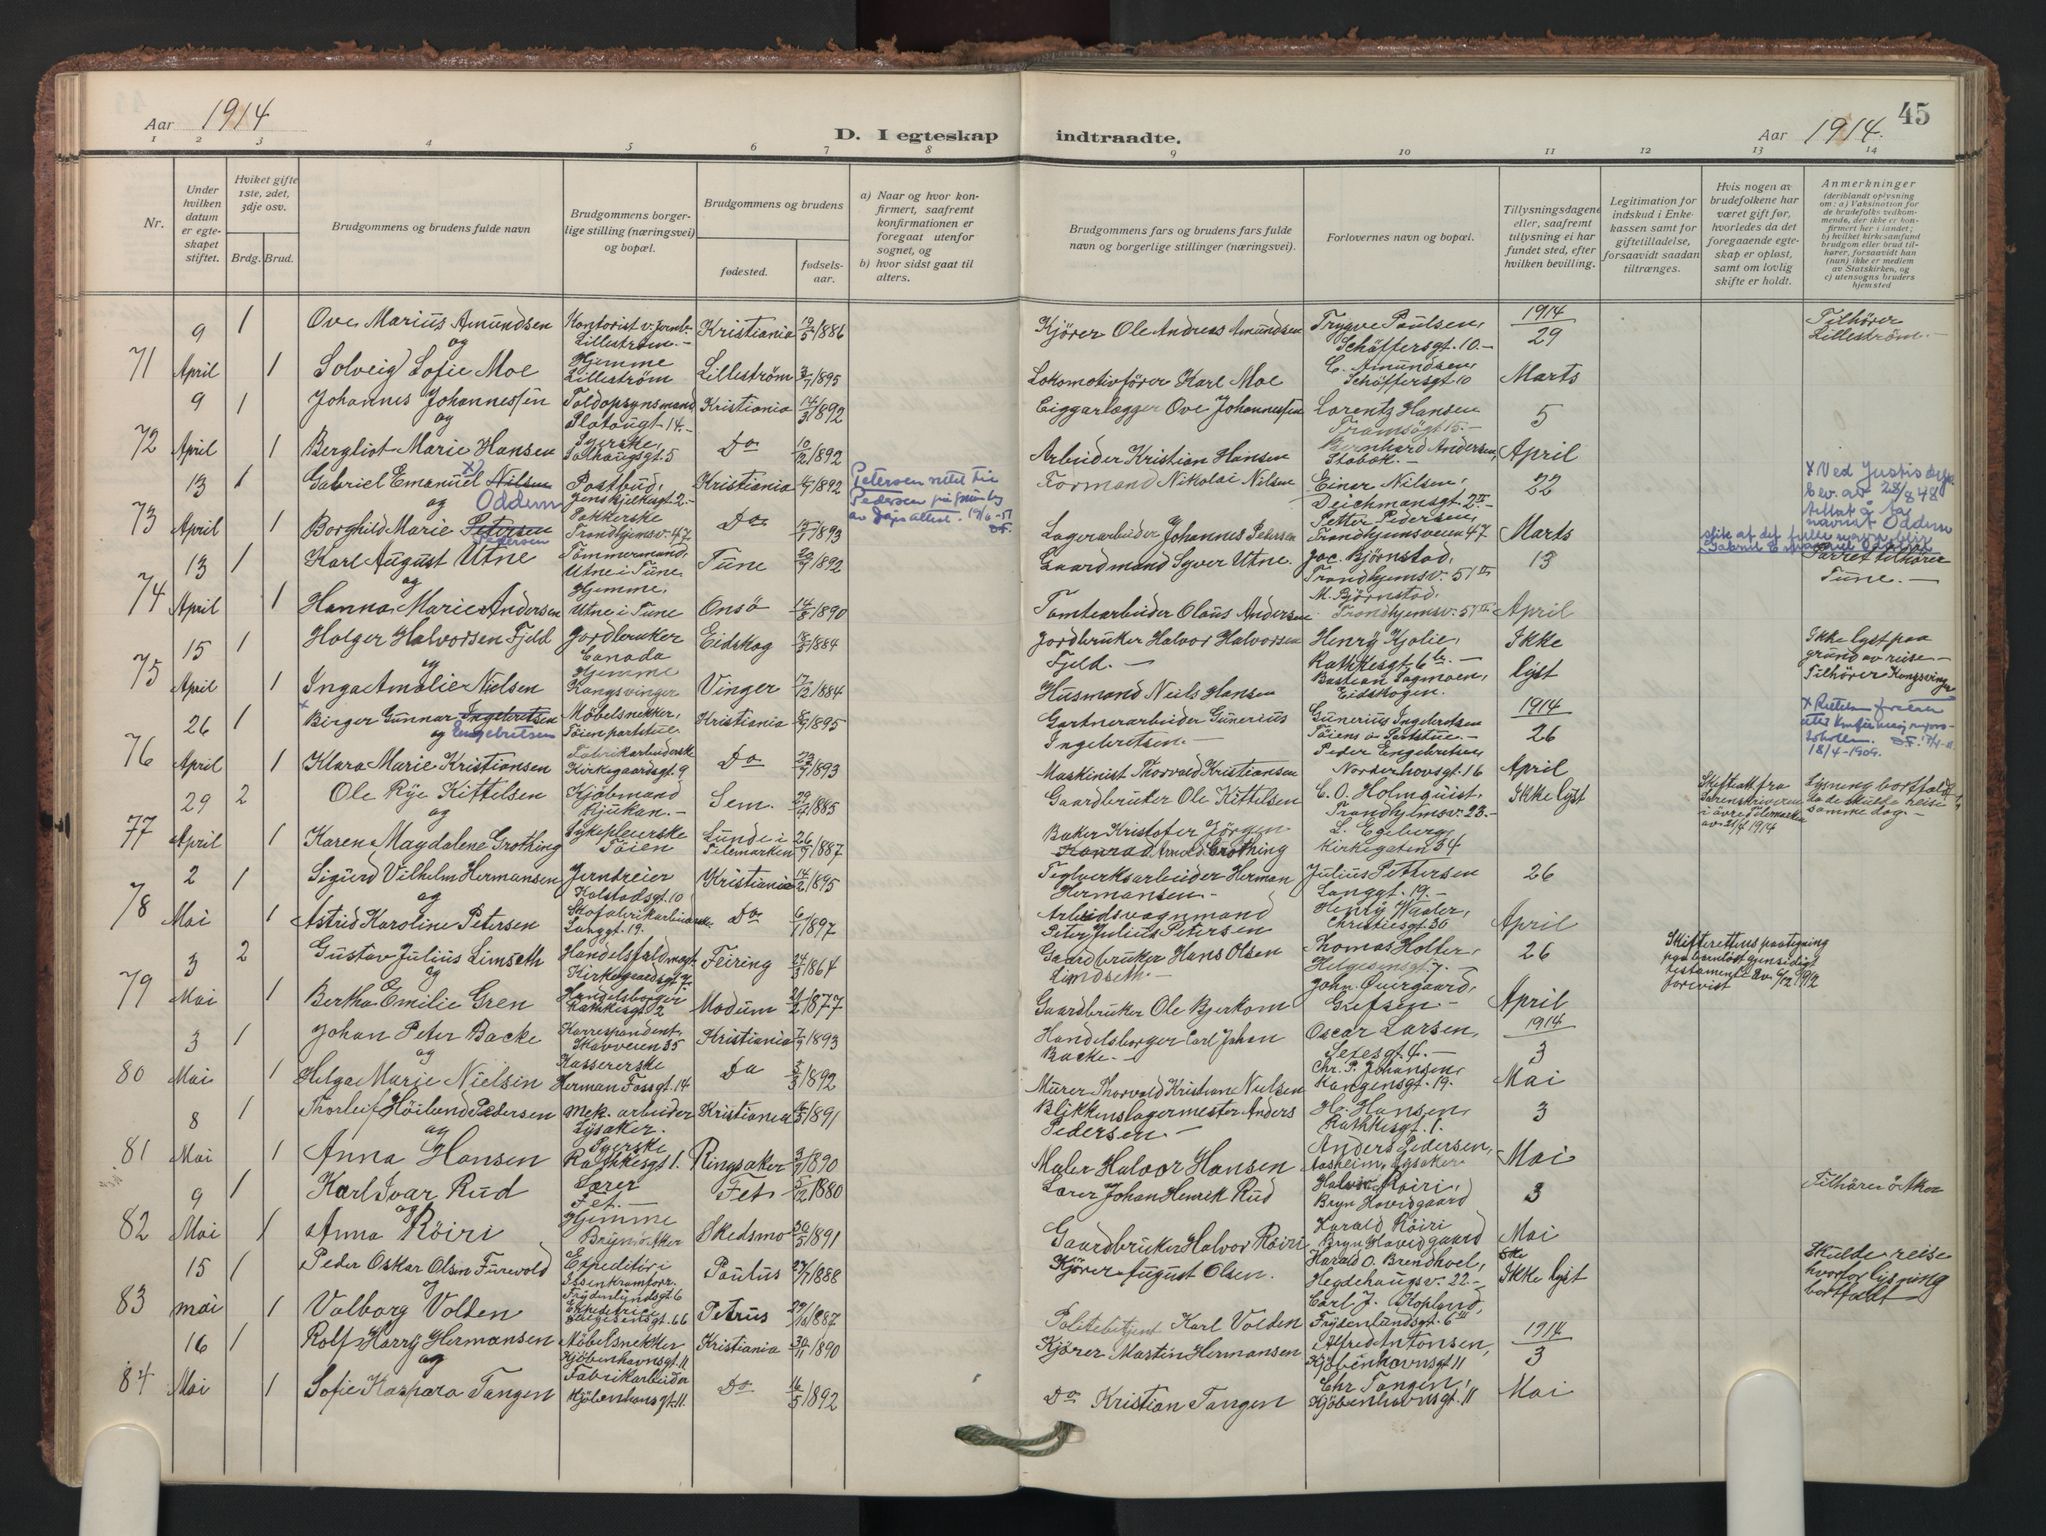 Aar 1914
D. I egteskap indtraadte.
Aar 1914.
45
1 2 3 4 5 6 7 8 9 10 11 12 13 14
Nr.
Under hvilken datum er egteskapet stiftet.
Hvilket gifte 1ste, 2det, 3dje osv.
Brdg. Brud.
Brudgommens og brudens fulde navn
Brudgommens borgerlige stilling (næringsvei) og bopæl.
Brudgommens og brudens
fødested.
fødselsaar.
a) Naar og hvor konfirmert, saafremt konfirmationen er foregaat utenfor sognet, og
b) hvor sidst gaat til alters.
Brudgommens fars og brudens fars fulde navn og borgerlige stillinger (næringsvei).
Forlovernes navn og bopæl.
Tillysningsdagene eller, saafremt tillysning ei har fundet sted, efter hvilken bevilling.
Legitimation for indskud i Enkekassen samt for giftetilladelse, forsaavidt saadan tiltrænges.
Hvis nogen av brudefolkene har været gift før, hvorledes da det foregaaende egteskap er opløst, samt om lovlig skifte er holdt.
Anmerkninger
71 9 April 1 Ove Marius Amundsen Lillestrøm.- Kristiania 19/5 1886 Kjører Ole Andreas Amundsen Trygve Paulsen, Schäffersgt. 10.- 1914 29 Marts Tilhører Lillestrøm.-
og
1 Solveig Sofie Moe Hjemme Lillestrøm Lillestrøm 3/7 1895 Lokomotivfører Karl Moe C. Amundsen, Schäffersgt 10
72 9 April 1 Johannes Johannessen Toldopsynsmand Kristiania 14/3 1892 Ove Johannessen Lorentz Hansen Tromsøgt 15.- 5 April
og
1 Bergliot Marie Hansen Syerske, Solhaugsgt. 5 Do 10/12 1892 Arbeider Kristian Hansen Bernhard Andersen, Stabæk.-
73 13 April 1 Gabriel Emanuel Nilsen Oddum Postbud, Kristiania 1892 Petersen rettet til Pedersen Formand Nikolai Nilsen Einar Nilsen, Deichmansgt. 2 II 22 Marts x Ved Justisdep. bev. av
og
1 Borghild Marie Petersen Pedersen Pakkerske Trondhjemsv. 47 Do 1893 Lagerarbeider Johannes Petersen Petter Pedersen, Trondhjemsveien 47 navnet Oddum
74 13 April 1 Karl August Utne Tømmermand, Utne i Tune Tune 20/9 1892 Gaardmand Syver Utne Jac. Bjørnstad, Trondhjemsv. 51 II 13 April Parret tilhører Tune.-
og
1 Hanna Marie Andersen Hjemme, Utne i Tune Onsø 14/8 1890 Tomtearbeider Olaus Andersen M. Bjørnstad, Trondhjemsv. 51 II
75 15 April 1 Holger Halvorsen Fjeld Jordbruker Canada Eidskog 1884 Jordbruker Halvor Halvorsen Fjeld.- Henry Kjolie, Rathkesgt. 6 b.- Ikke lyst Ikke lyst paa grund av reise.- Tilhører Kongsvinger
og
1 Inga Amalie Nielsen Hjemme Kongsvinger Vinger 7/12 1884 Husmand Niels Hansen Bastian Sagmoen, Eidskogen.
76 26 April 1 x Birger Gunnar Ingebretsen Engebretsen Møbelsnekker, Tøien Kristiania 1895 Gartnerarbeider Gunerius Ingebretsen.- Gunerius Ingebretsen Tøiens 1914 26 April 18/4-1909.
og
1 Klara Marie Kristiansen Fabrikarbeiderske Kirkegaardsgt. 9 Do 23/7 1893 Maskinist Thorvald Kristiansen Peder Engebretsen Norderhovsgt. 16
77 29 April 2 Ole Rye Kittelsen Kjøbmand Rjukan.- Sem. 29/4 1885 Gaardbruker Ole Kittelsen C. O. Holmquist, Trondhjemsv. 23.- Ikke lyst Skifteatt. fra Sorenskriveren i øvre Telemarken av 21/4 1914 Lysning bortfaldt da de skulde reise samme dag.-
og
1 Karen Magdalene Grothing Sykepleierske Tøien Lunde i Telemarken 26/9 1887 Baker Kristofer Jørgen Konrad Grothing L. Egeberg, Kirkegaten 34
78 2 Mai 1 Sigurd Vilhelm Hermansen Jerndreier Kolstadsgt. 10 Kristiania 14/2 1895 Teglverksarbeider Herman Hermansen.- Julius Pettersen Langgt. 19.- 26 April
og
1 Astrid Karoline Petersen Skofabrikarbeiderske. Langgt. 19. Do 1897 Arbeidsvognmand Peter Julius Petersen Henry Waaler, Christiesgt 30
79 3 Mai 2 Gustav Julius Limseth Kirkegaardsgt. 7 Feiring 24/3 1864 Gaardbruker Hans Olsen Limdseth.- Thomas Holter, Helgesensgt. 7.- 26 April Skifterettens paategning paa barnløst gjensidigt testamente av 6/12 1912 forevist
og
1 Bertha Emilie Gren Handelsborger Rathkesgt. 2 Modum 21/2 1877 Gaardbruker Ole Bjerkom John Overgaard, Grefsen.-
80 3 Mai 1 Johan Peter Backe Korrespondent, Skovveien 35 Kristiania 7/9 1893 Handelsborger Carl Johan Backe.- Oscar Larsen, 1914 3 Mai
og
1 Helga Marie Nielsen Kassererske Herman Fossgt. 14 Do 3/3 1892 Murer Thorvald Kristian Nielsen Chr. P. Johansen, Kongensgt. 19.
81 8 Mai 1 Thorleif Høilund Pedersen Mek. arbeider Lysaker. Kristiania 1891 Blikkenslagermester Anders Pedersen.- H. Hansen, Rathkesgt. 1. 3 Mai
og
1 Anna Hansen Syerske Rathkesgt 1. Ringsaker 3/9 1890 Maler Halvor Hansen Anders Pedersen, Aasheim, Lysaker
82 9 Mai 1 Karl Ivar Rud Lærer Fet.- Fet 5/12 1880 Lærer Johan Henrik Rud Halvor Røiri, Bryn Hovidgaard 3 Mai
og
1 Anna Røiri Hjemme Skedsmo 30/5 1891 Gaardbruker Halvor Røiri Harald Røiri Bryn Hovidgaard
83 15 mai 1 Peder Oskar Olsen Furevold Frydenlundsgt 6 Paulus 27/7 1888 Kjører August Olsen. Harald O. Brendhoel, Hegdehaugsv. 22.- Ikke lyst Skulde reise hvorfor lysning bortfaldt
og
1 Valborg Volden Helgesensgt. 66 Petrus 29/10 1887 Politibetjent Karl Volden Carl J. Hopland, Frydenlundsgt. 6
84 16 Mai 1 Rolf Harry Hermansen Møbelsnekker Kjøbenhavnsgt. 11 Kristiania 30/11 1890 Kjører Martin Hermansen Alfred Antonsen, Kjøbenhavnsgt 11 1914 3 Mai
og
1 Sofie Kaspara Tangen Fabrikarbeider Kjøbenhavnsgt. 11. Do 16/5 1892 Do Kristian Tangen Chr Tangen, Kjøbenhavnsgt. 11